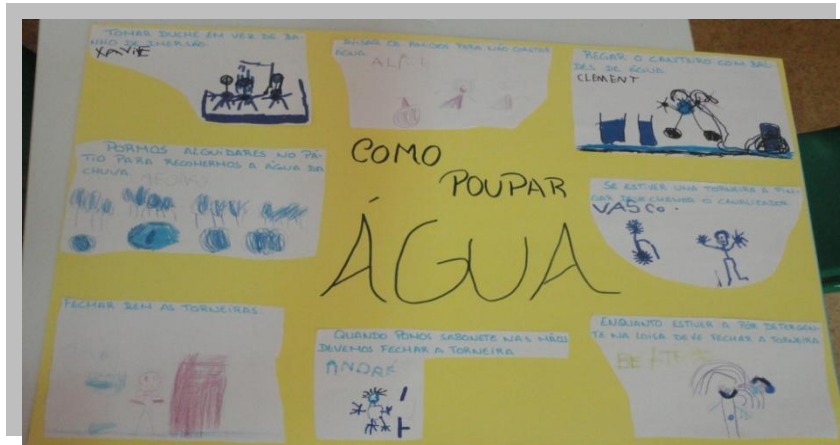 TOMAR DUCHE EM VEZ DE BA-
NHO DE IMERSÃO.
XAVIE
AVISAR OS AMIGOS PARA NÃO GASTAR
ÁGUA.
REGAR O CANTEIRO COM BAL-
DES DE ÁGUA.
CLEMENT
PORMOS ALGUIDARES NO PÁ-
TIO PARA RECOLHERMOS A ÁGUA DA
CHUVA.
AFONSO
COMO
POUPAR
ÁGUA
SE ESTIVER UMA TORNEIRA A PIN-
GAR CHAMAR O CANALIZADOR.
VASCO.
FECHAR BEM AS TORNEIRAS.
QUANDO POMOS SABONETE NAS MÃOS
DEVEMOS FECHAR A TORNEIRA
ANDRÉ
ENQUANTO ESTIVER A PÔR DETERGEN-
TE NA LOIÇA DEVE FECHAR A TORNEIRA